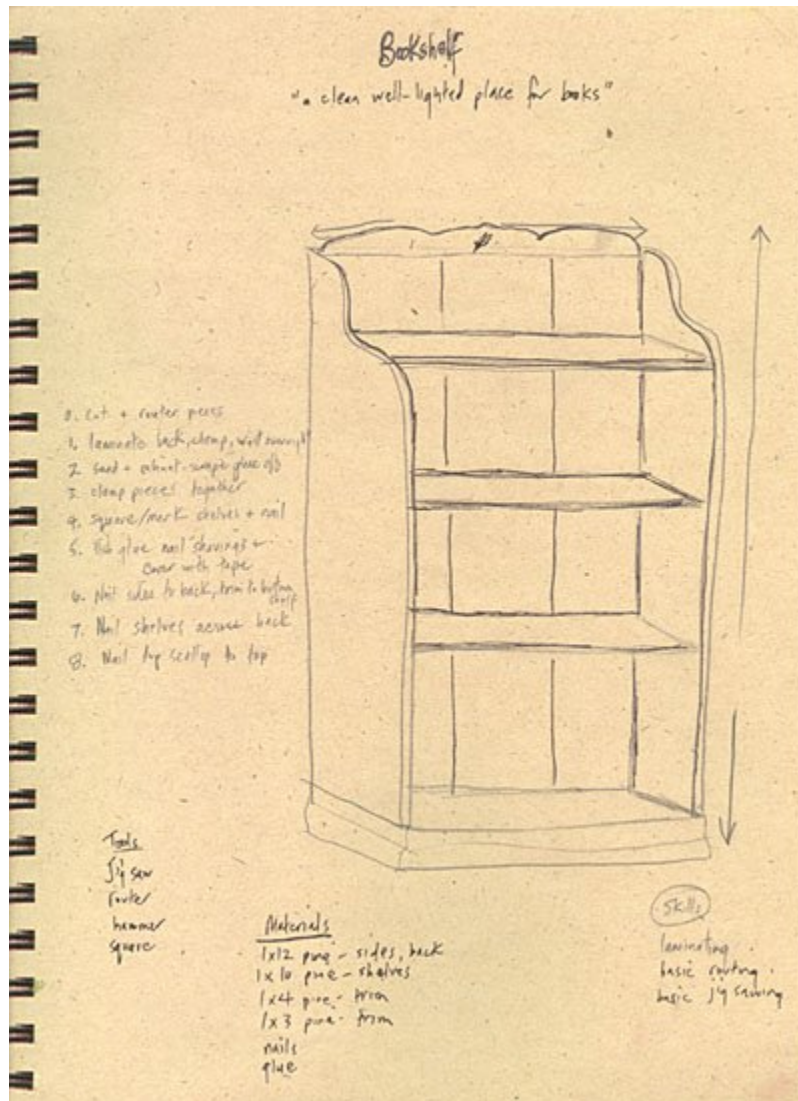 Bookshelf
"a clean well-lighted place for books"
0. Cut + router pieces
1. laminate back, clamp, wait overnight
2. sand + cabinet-scrape glue off
3. clamp pieces together
4. square/mark shelves + nail
5. glue nail shavings +
cover with tape
6. Nail sides to back, trim to bottom
shelf
7. Nail shelves across back
8. Nail top scallop to top
Tools
jig saw
router
hammer
square
Materials
1x12 pine - sides, back
1x10 pine - shelves
1x4 pine - trim
1x3 pine - trim
nails
glue
Skills
laminating
basic routing
basic jig sawing